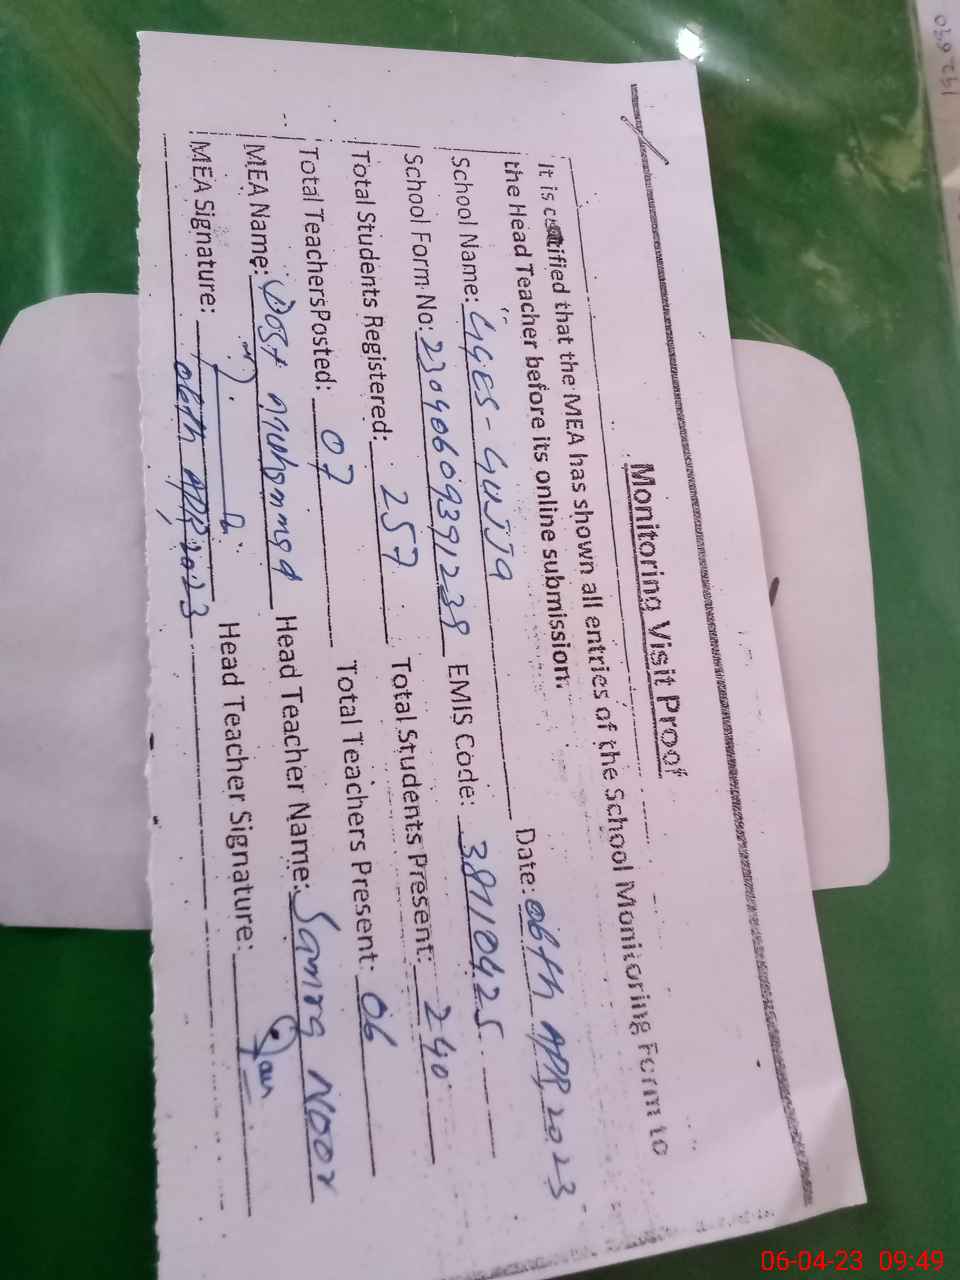 Monitoring Visit Proof
It is certified that the MEA has shown all entries of the School Monitoring Form to
the Head Teacher before its online submission.
School Name: GGES - GUJJA Date: 06th APR, 2023
School Form No: 23040609391238 EMIS Code: 38110425
Total Students Registered: 257 Total Students Present: 240
Total Teachers Posted: 07 Total Teachers Present: 06
MEA Name: Dost Muhammad Head Teacher Name: Samra Noor
MEA Signature: Head Teacher Signature:
06th APR, 2023
06-04-23 09:49